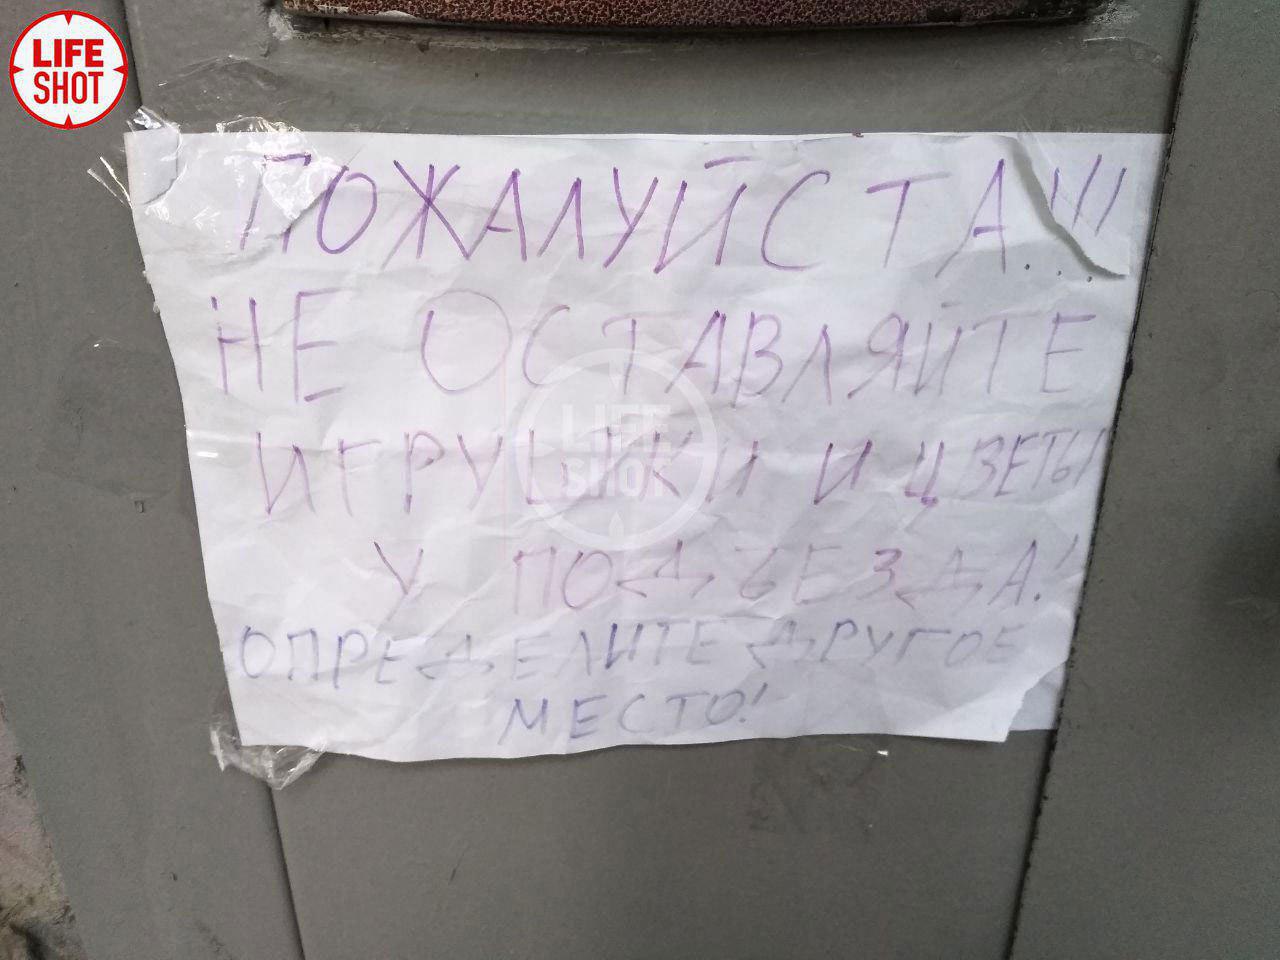 LIFE
SHOT
ПОЖАЛУЙСТА!!!
НЕ ОСТАВЛЯЙТЕ
ИГРУШКИ И ЦВЕТЫ
LIFE
SHOT
У ПОДЪЕЗДА!
ОПРЕДЕЛИТЕ ДРУГОЕ
МЕСТО!